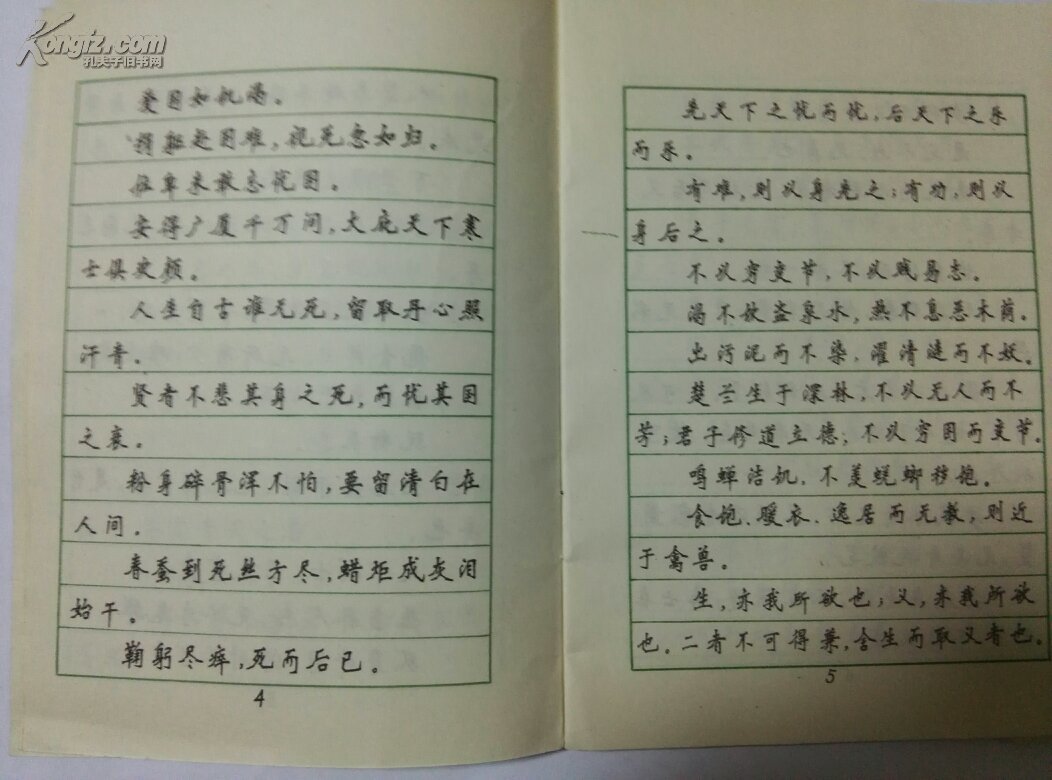 Kongfz.com
孔夫子旧书网
爱国如饥渴。
捐躯赴国难，视死忽如归。
位卑未敢忘忧国。
安得广厦千万间，大庇天下寒
士俱欢颜。
人生自古谁无死，留取丹心照
汗青。
贤者不悲其身之死，而忧其国
之衰。
粉身碎骨浑不怕，要留清白在
人间。
春蚕到死丝方尽，蜡炬成灰泪
始干。
鞠躬尽瘁，死而后已。
4
先天下之忧而忧，后天下之乐
而乐。
有难，则以身先之；有功，则以
身后之。
不以穷变节，不以贱易志。
渴不饮盗泉水，热不息恶木荫。
出污泥而不染，濯清涟而不妖。
楚兰生于深林，不以无人而不
芳；君子修道立德；不以穷困而变节。
鸣蝉洁饥，不羡蜣螂秽饱。
食饱、暖衣、逸居而无教，则近
于禽兽。
生，亦我所欲也；义，亦我所欲
也。二者不可得兼，舍生而取义者也。
5